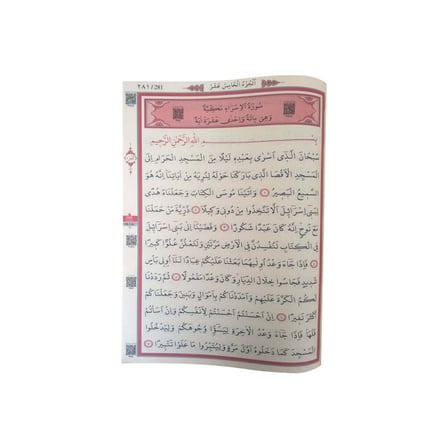 اَلْجُزْءُ الْخَامِسُ عَشَرَ
٢٨١ / 281
سُورَةُ الْاِسْرَاءِ مَكِّيَّةٌ
وَهِىَ مِائَةٌ وَاِحْدٰى عَشْرَةَ اٰيَةً
بِسْمِ اللّٰهِ الرَّحْمٰنِ الرَّحٖيمِ
سُبْحَانَ الَّذٖٓى اَسْرٰى بِعَبْدِهٖ لَيْلًا مِنَ الْمَسْجِدِ الْحَرَامِ اِلَى
الْمَسْجِدِ الْاَقْصَا الَّذٖى بَارَكْنَا حَوْلَهُ لِنُرِيَهُ مِنْ اٰيَاتِنَا اِنَّهُ هُوَ
السَّمٖيعُ الْبَصٖيرُ ١ وَاٰتَيْنَا مُوسَى الْكِتَابَ وَجَعَلْنَاهُ هُدًى
لِبَنٖٓى اِسْرَٓائٖلَ اَلَّا تَتَّخِذُوا مِنْ دُونٖى وَكٖيلًا ٢ ذُرِّيَّةَ مَنْ حَمَلْنَا
مَعَ نُوحٍ اِنَّهُ كَانَ عَبْدًا شَكُورًا ٣ وَقَضَيْنَٓا اِلٰى بَنٖٓى اِسْرَٓائٖلَ
فِى الْكِتَابِ لَتُفْسِدُنَّ فِى الْاَرْضِ مَرَّتَيْنِ وَلَتَعْلُنَّ عُلُوًّا كَبٖيرًا
٤ فَاِذَا جَٓاءَ وَعْدُ اُو۫لٰيهُمَا بَعَثْنَا عَلَيْكُمْ عِبَادًا لَنَٓا اُو۬لٖى بَأْسٍ
شَدٖيدٍ فَجَاسُوا خِلَالَ الدِّيَارِ وَكَانَ وَعْدًا مَفْعُولًا ٥ ثُمَّ رَدَدْنَا
لَكُمُ الْكَرَّةَ عَلَيْهِمْ وَاَمْدَدْنَاكُمْ بِاَمْوَالٍ وَبَنٖينَ وَجَعَلْنَاكُمْ
اَكْثَرَ نَفٖيرًا ٦ اِنْ اَحْسَنْتُمْ اَحْسَنْتُمْ لِاَنْفُسِكُمْ وَاِنْ اَسَأْتُمْ
فَلَهَا فَاِذَا جَٓاءَ وَعْدُ الْاٰخِرَةِ لِيَسُٓوؤُ۫ا وُجُوهَكُمْ وَلِيَدْخُلُوا
الْمَسْجِدَ كَمَا دَخَلُوهُ اَوَّلَ مَرَّةٍ وَلِيُتَبِّرُوا مَا عَلَوْا تَتْبٖيرًا ٧